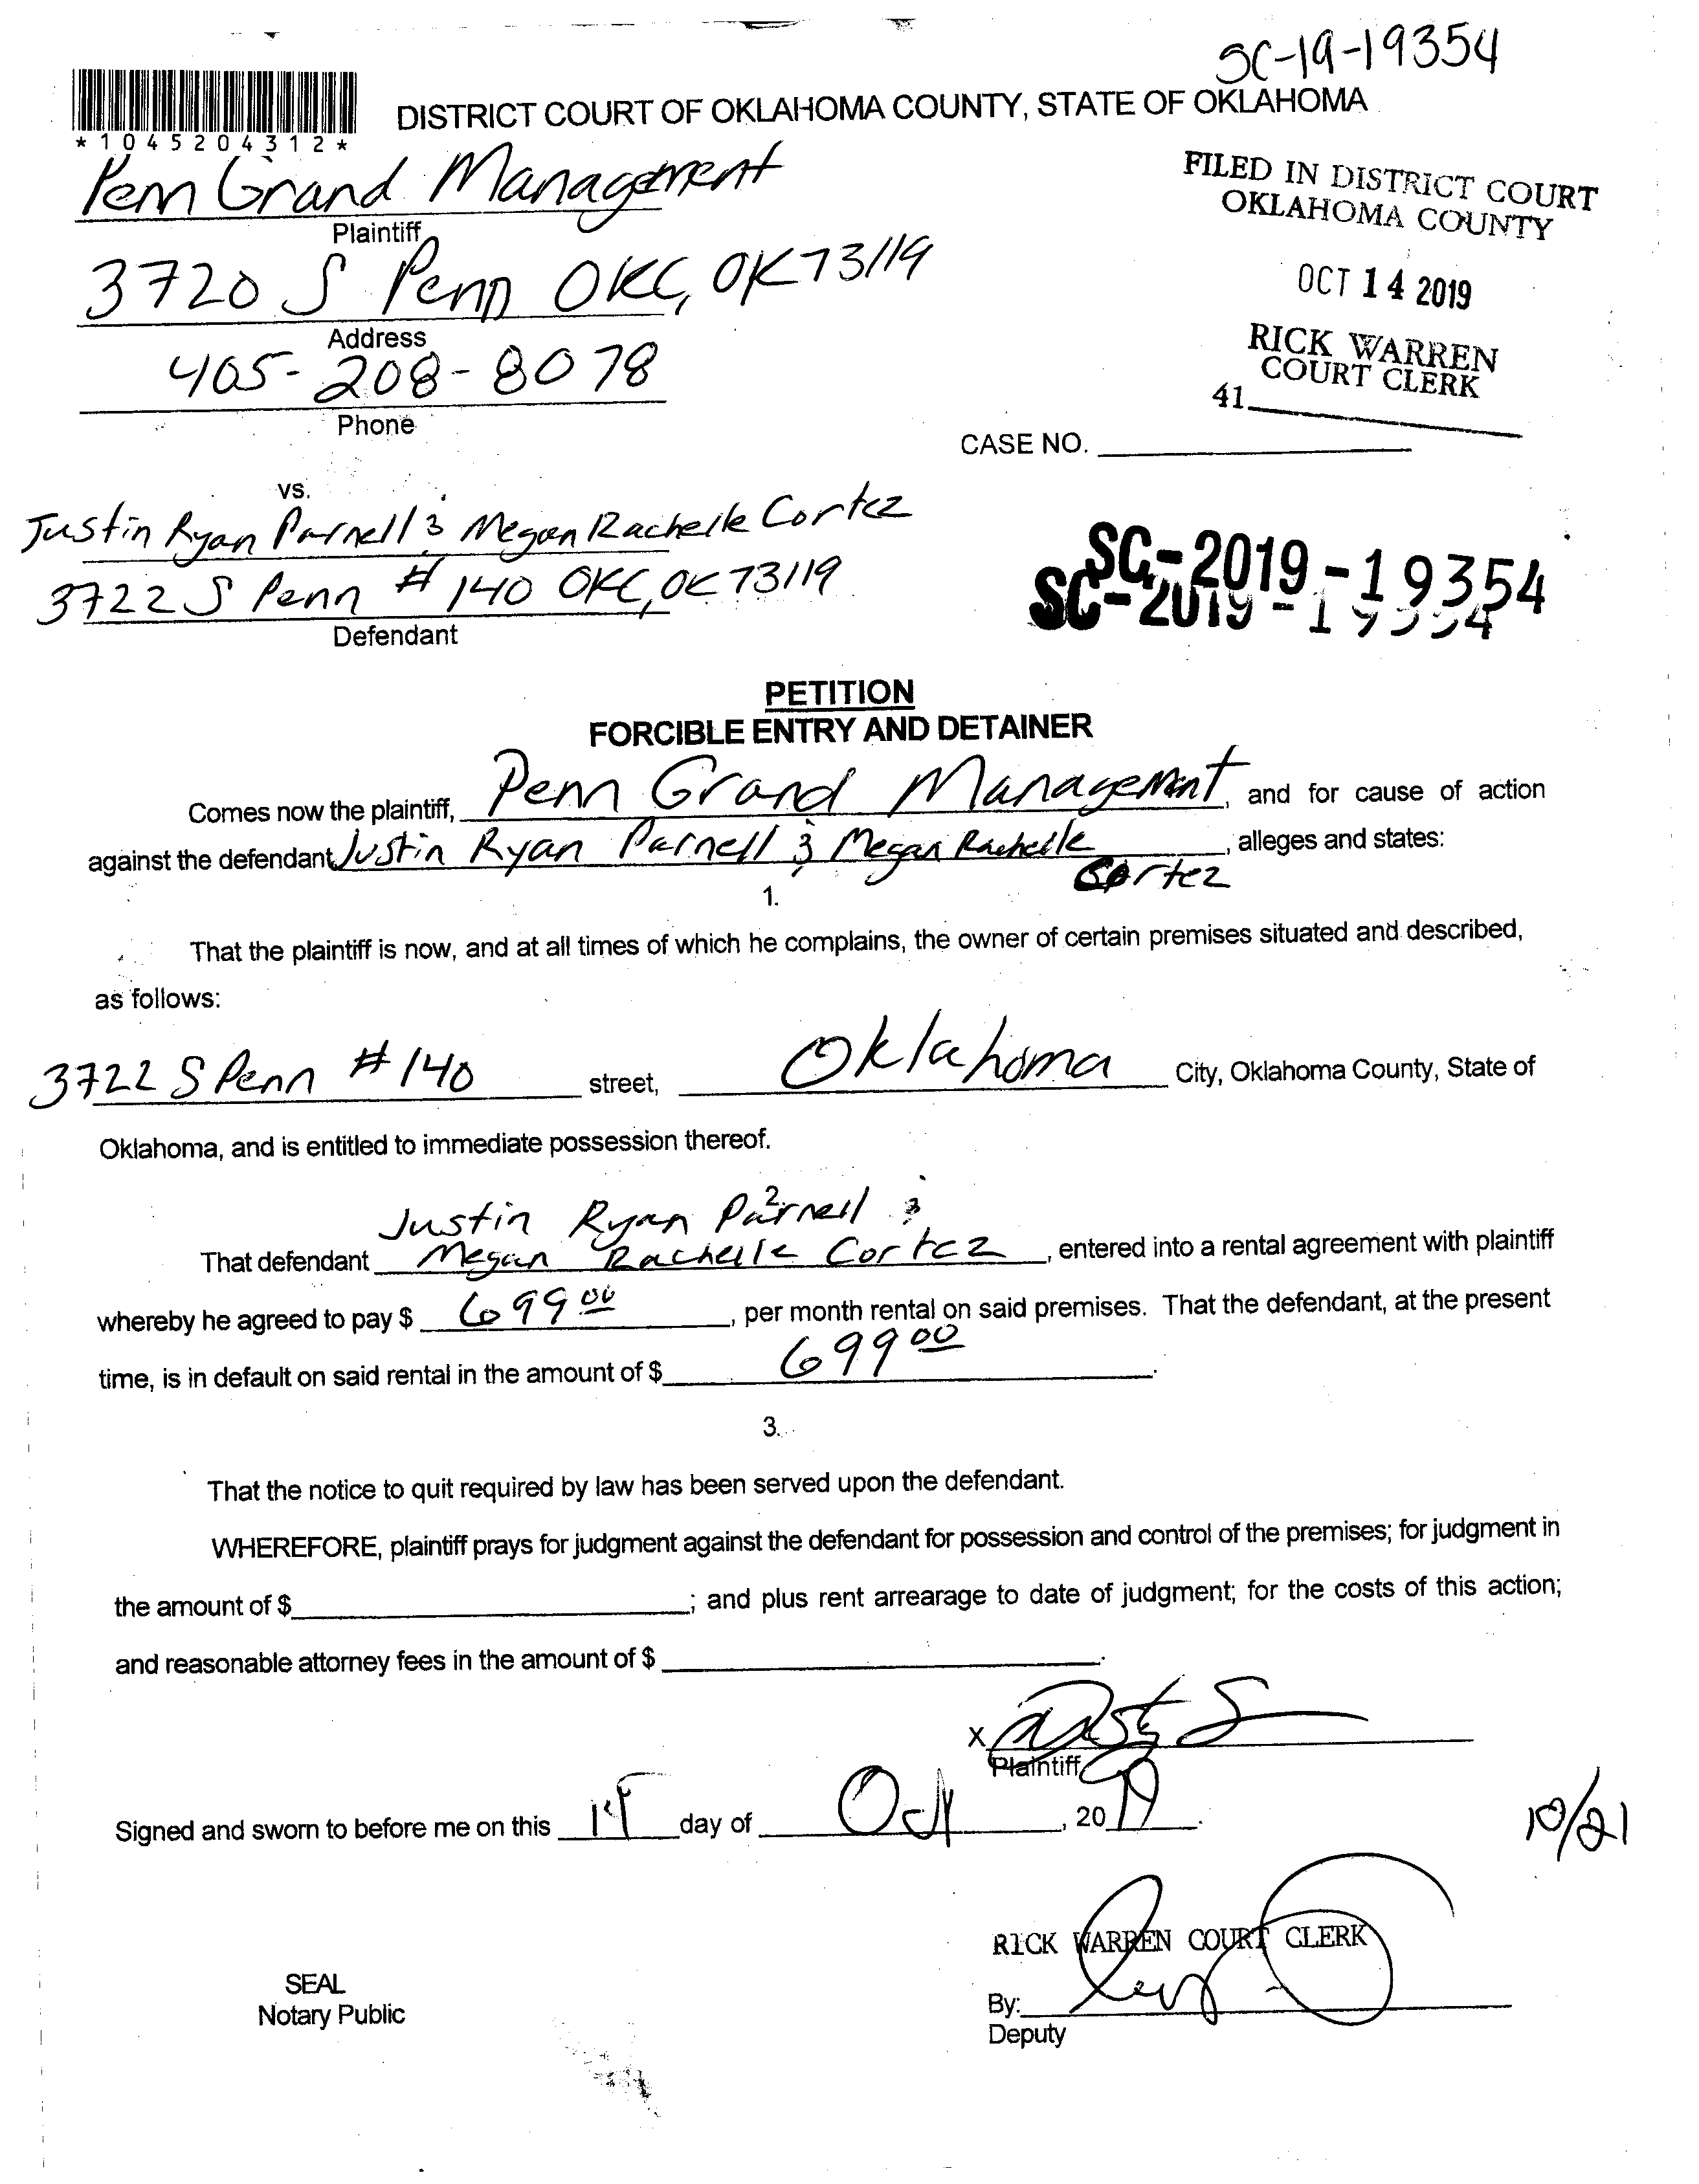 SC-19-19354
DISTRICT COURT OF OKLAHOMA COUNTY, STATE OF OKLAHOMA
*1045204312*
Penn Grand Management
Plaintiff
3720 S Penn OKC, OK 73119
Address
405-208-8078
Phone
FILED IN DISTRICT COURT
OKLAHOMA COUNTY
OCT 14 2019
RICK WARREN
COURT CLERK
41
CASE NO.
vs.
Justin Ryan Parnell & Megan Rachelle Cortez
3722 S Penn # 140 OKC, OK 73119
Defendant
SC-2019-19354
SC-2019-19354
PETITION
FORCIBLE ENTRY AND DETAINER
Comes now the plaintiff, Penn Grand Management, and for cause of action
against the defendant Justin Ryan Parnell & Megan Rachelle Cortez, alleges and states:
1.
That the plaintiff is now, and at all times of which he complains, the owner of certain premises situated and described,
as follows:
3722 S Penn # 140 street, Oklahoma City, Oklahoma County, State of
Oklahoma, and is entitled to immediate possession thereof.
2.
Justin Ryan Parnell &
That defendant Megan Rachelle Cortez, entered into a rental agreement with plaintiff
whereby he agreed to pay $ 699.00, per month rental on said premises. That the defendant, at the present
time, is in default on said rental in the amount of $ 699.00.
3.
That the notice to quit required by law has been served upon the defendant.
WHEREFORE, plaintiff prays for judgment against the defendant for possession and control of the premises; for judgment in
the amount of $ ; and plus rent arrearage to date of judgment; for the costs of this action;
and reasonable attorney fees in the amount of $ .
X
Plaintiff
Signed and sworn to before me on this 14 day of Oct, 2019.
10/21
RICK WARREN COURT CLERK
SEAL
Notary Public
By:
Deputy